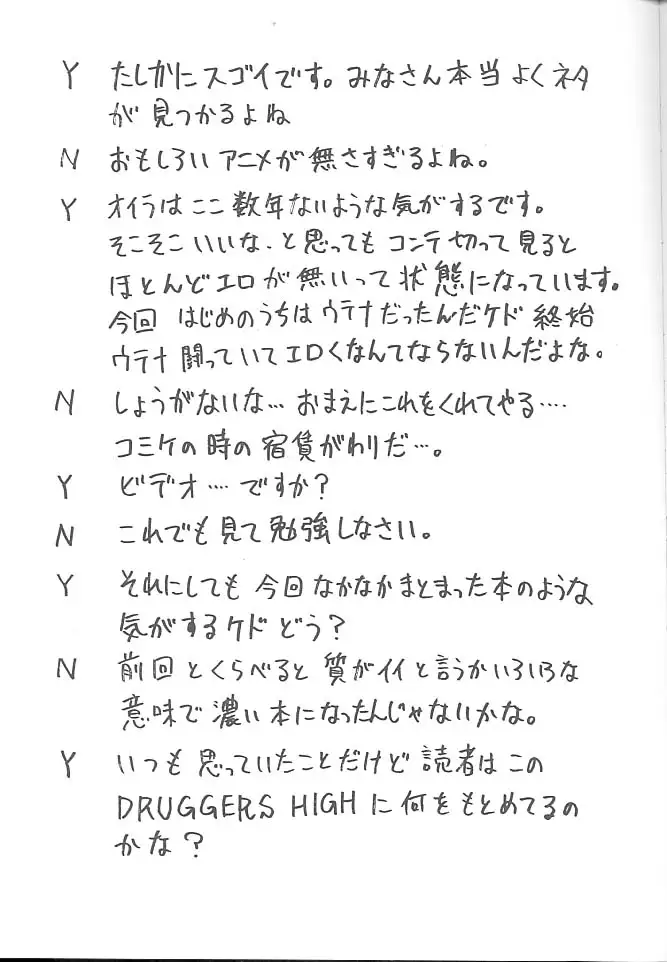 Y たしかにスゴイです。みなさん本当よくネタ
が見つかるよね
N おもしろいアニメが無さすぎるよね。
Y オイラはここ数年ないような気がするです。
そこそこいいな、と思ってもコンテ切って見ると
ほとんどエロが無いって状態になっています。
今回 はじめのうちはウテナだったんだケド 終始
ウテナ闘っていてエロくなんてならないんだよな。
N しょうがないな… おまえにこれをくれてやる‥‥
コミケの時の宿賃がわりだ…。
Y ビデオ…‥ですか?
N これでも見て勉強しなさい。
Y それにしても今回なかなかまとまった本のような
気がするケドどう?
N 前回とくらべると質がイイと言うかいろいろな
意味で濃い本になったんじゃないかな。
Y いつも思っていたことだけど読者はこの
DRUGGERS HIGHに何をもとめてるの
かな?